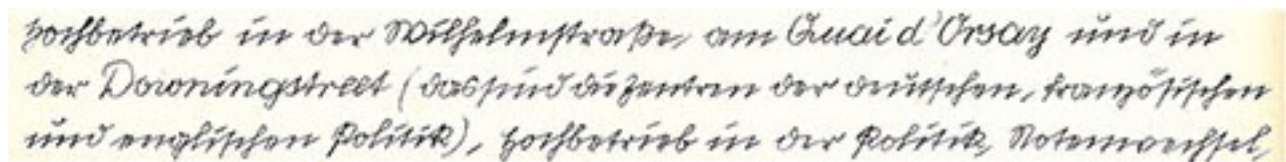 Hochbetrieb in der Wilhelmstraße, am Quai d'Orsay und in
der Downingstreet (das sind die Zentren der deutschen, französischen
und englischen Politik), Hochbetrieb in der Politik, Notenwechsel,